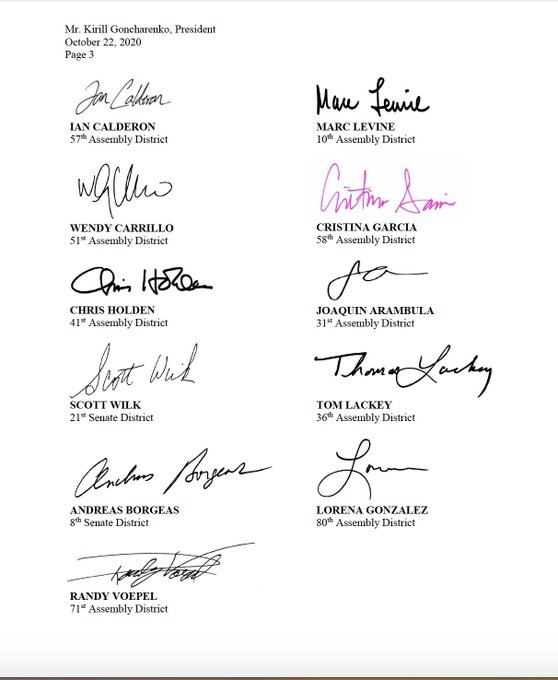 Mr. Kirill Goncharenko, President
October 22, 2020
Page 3
Ian Calderon
IAN CALDERON
57th Assembly District
Marc Levine
MARC LEVINE
10th Assembly District
WENDY CARRILLO
51st Assembly District
Cristina Garcia
CRISTINA GARCIA
58th Assembly District
Chris Holden
CHRIS HOLDEN
41st Assembly District
JOAQUIN ARAMBULA
31st Assembly District
Scott Wilk
SCOTT WILK
21st Senate District
Thomas Lackey
TOM LACKEY
36th Assembly District
Andreas Borgeas
ANDREAS BORGEAS
8th Senate District
LORENA GONZALEZ
80th Assembly District
Randy Voepel
RANDY VOEPEL
71st Assembly District